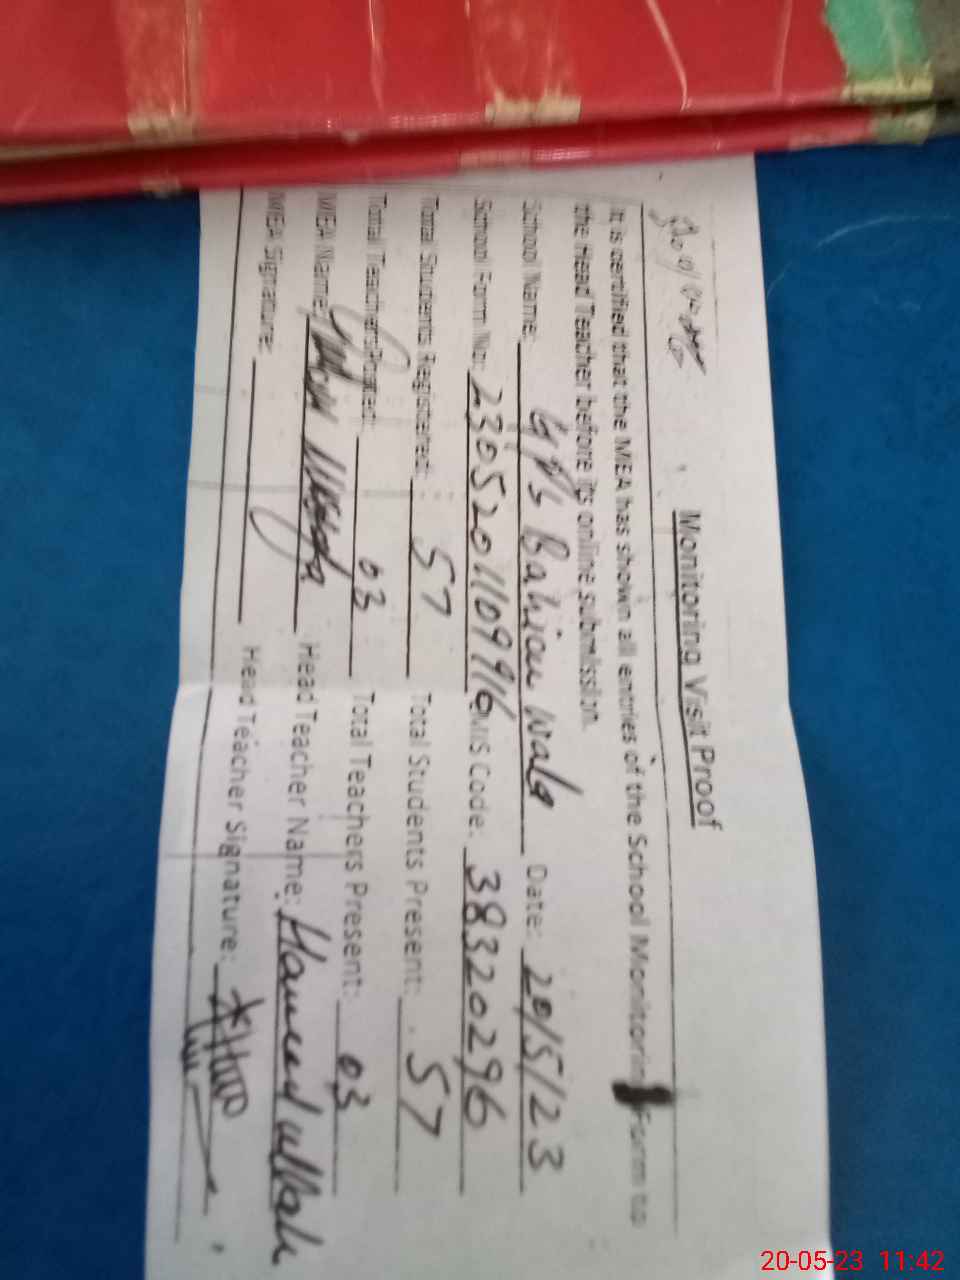 Monitoring Visit Proof
It is certified that the MEA has shown all entries of the School Monitoring Form to
the Head Teacher before its online submission.
School Name: GPS Bahian wala Date: 20/5/23
School Form No: 2305201109916 EMIS Code: 38320296
Total Students Registered: 57 Total Students Present: 57
Total Teachers Posted: 03 Total Teachers Present: 03
MEA Name: Head Teacher Name: Hameed ullah
MEA Signature: Head Teacher Signature:
20-05-23 11:42